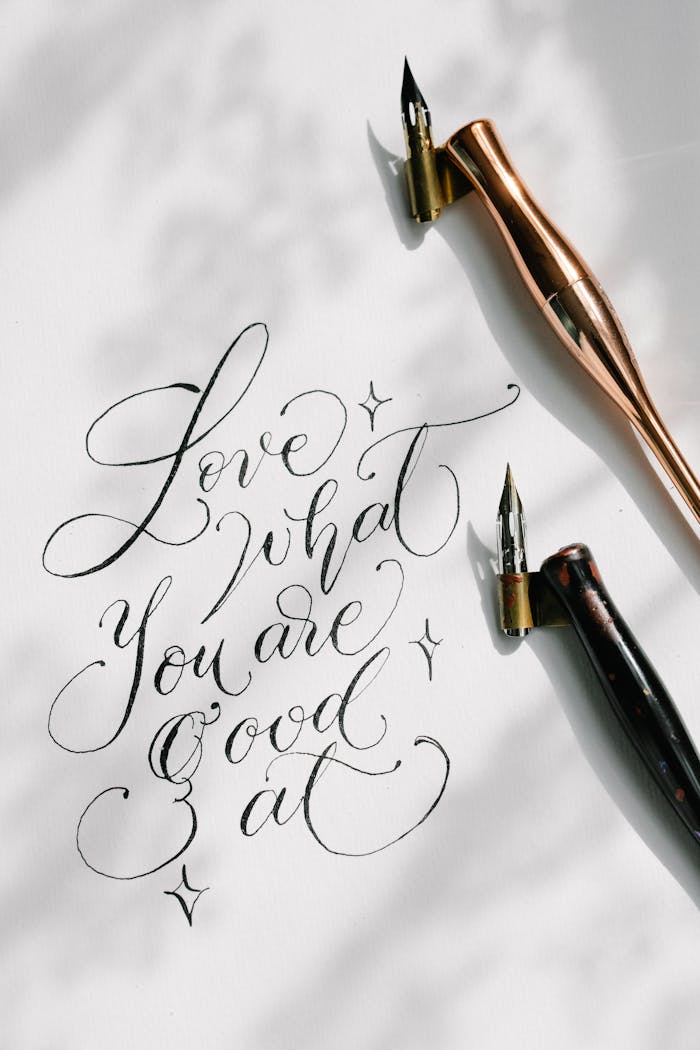 Love
what
You are
Good
at